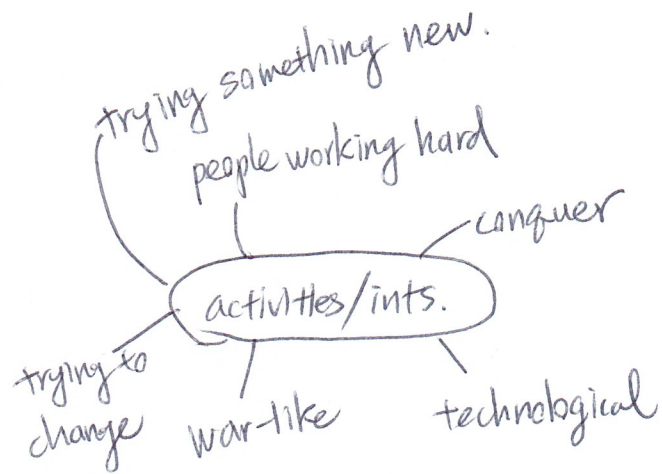 trying something new.
people working hard
conquer
activities/ints.
trying to
change
war-like
technological